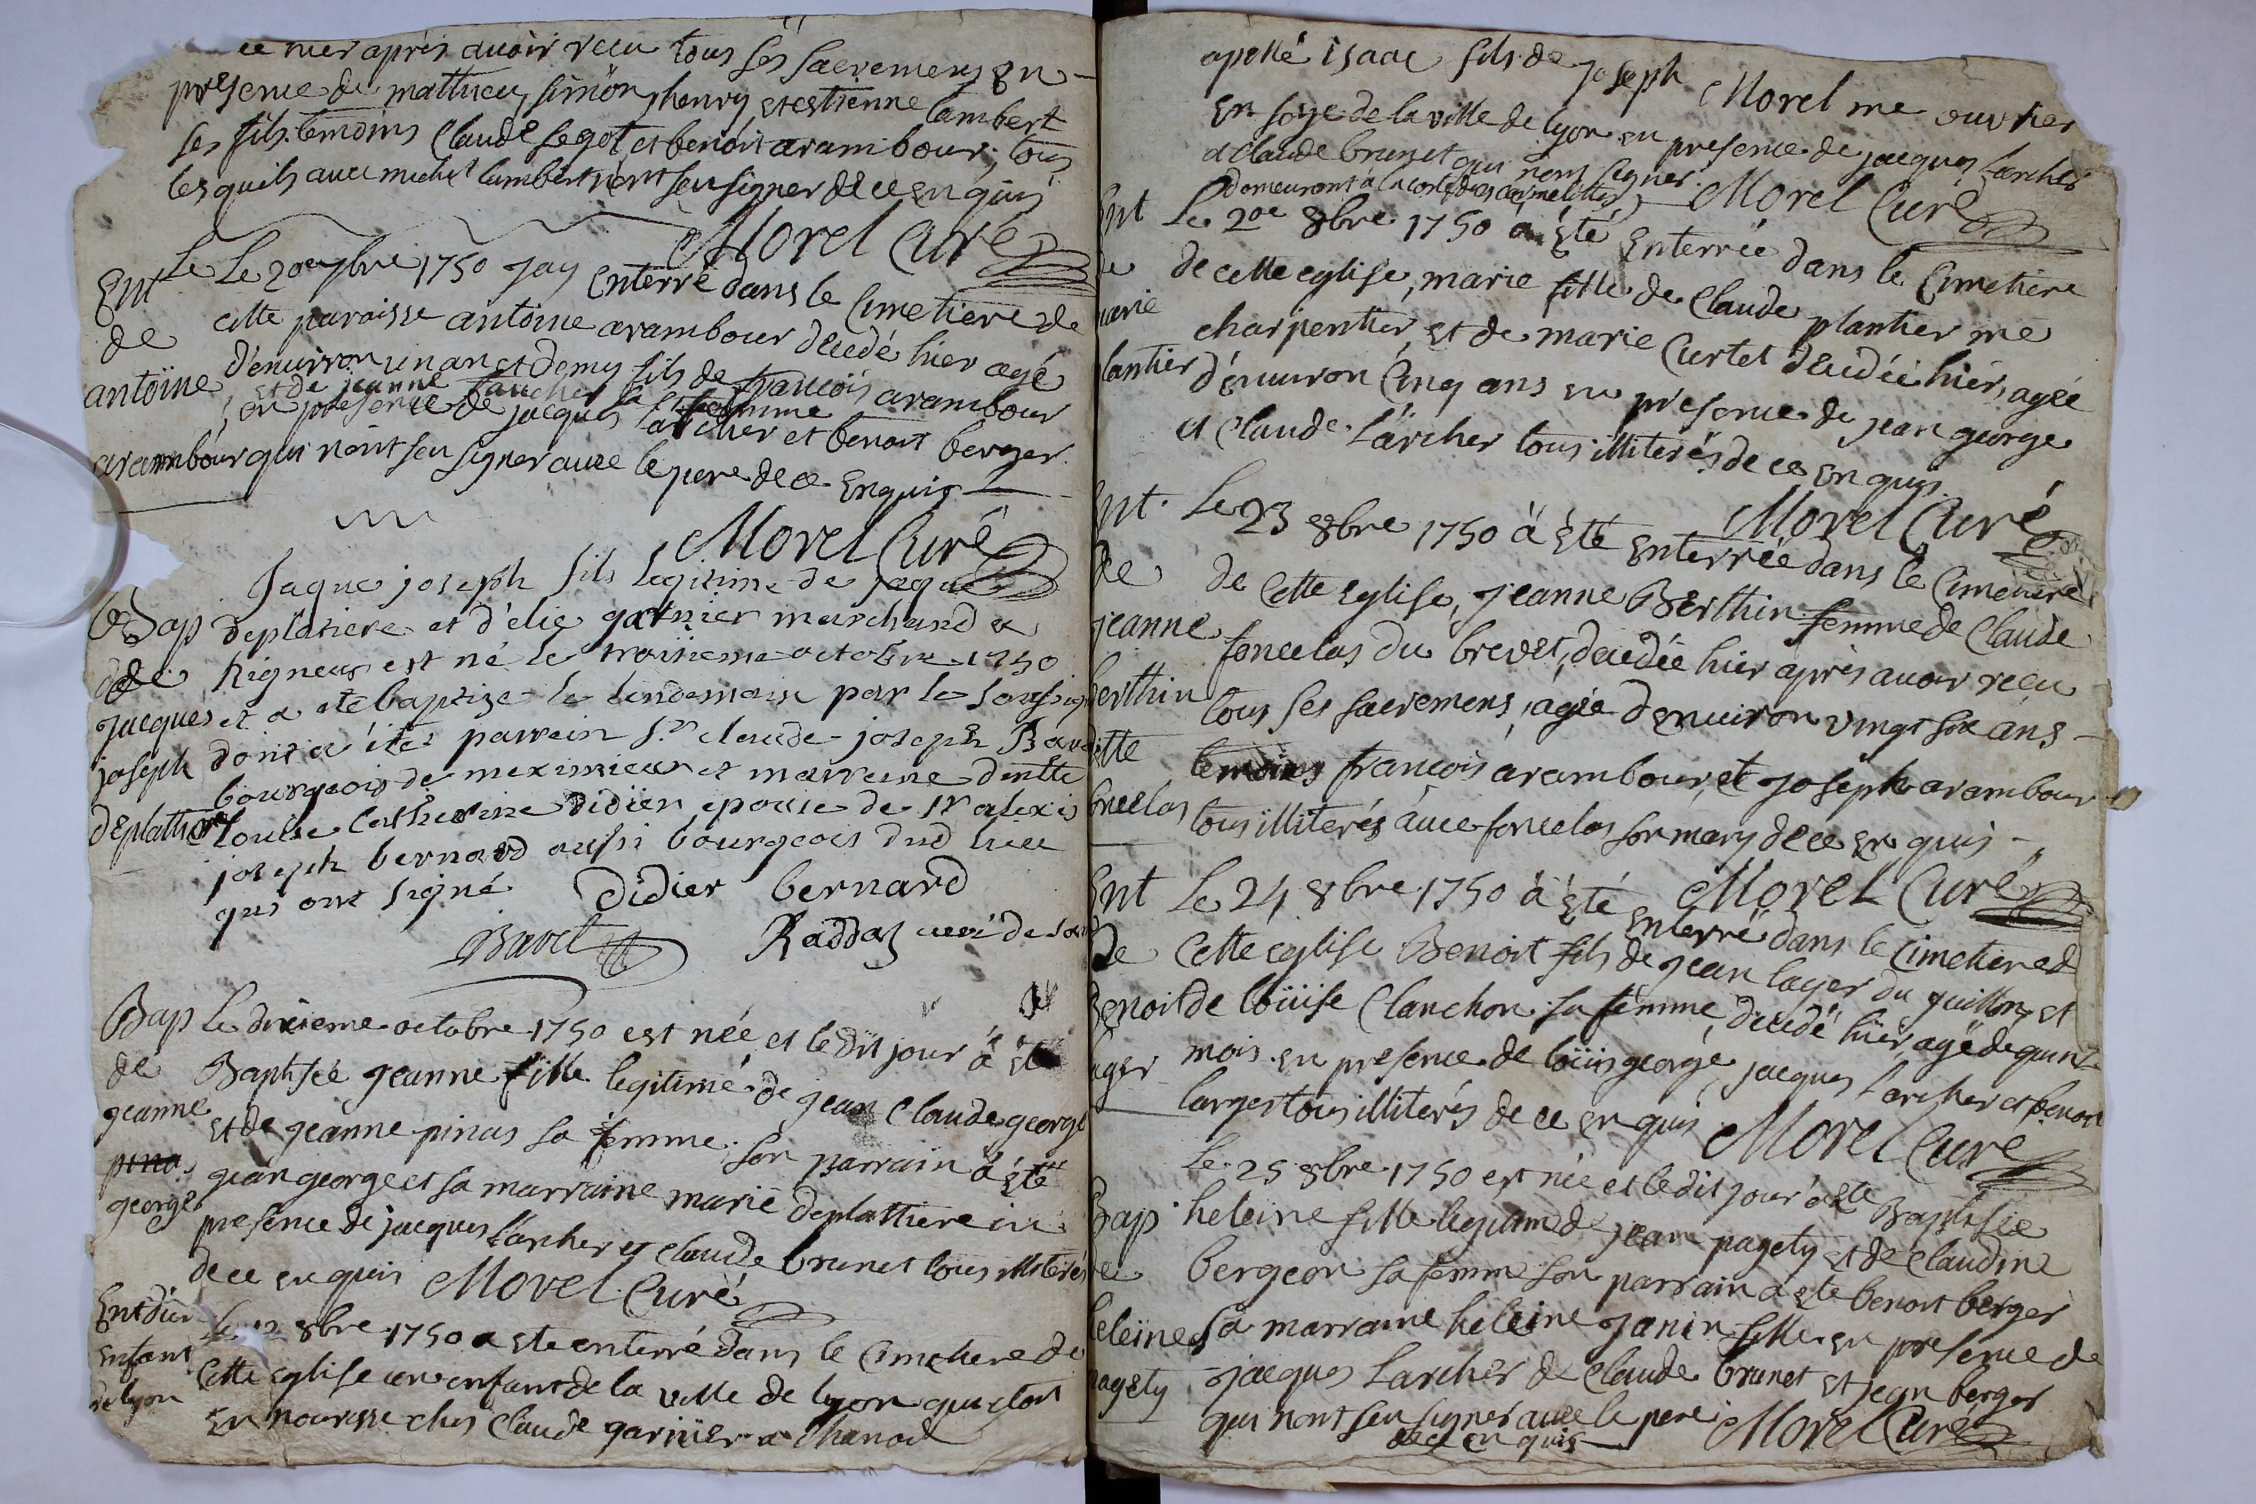 ce hier après avoir recu tous ses sacremens en
presence de mathieu, simön, henry, et estienne lambert
ses fils. temoins Claude legot et benoit arambour, tous
lesquels avec michel lambert nont seu signer de ce enquis
Morel Curé
Ent
de
antoine
arambour
Le Le 20e 7bre 1750 jay enterré dans le Cimetiere de
cette paroisse antoine arambour decedé hier agé
d'environ un an et demy fils de francois arambour
et de jeanne faucher sa femme
en presence de jacques Larcher et benoit berger
qui nont seu signer avec le pere de ce enquis
Morel Curé
Bap
de
jacques
joseph
deplattiere
Jaque joseph fils legitime de jaque
deplatiere et d'elie garnier marchand a
Rigneux est né le troisieme octobre 1750
et a eté baptize le lendemain par le soussig
dont a été parrein Sr claude joseph Bavet
bourgeois de meximieux et marreine dentte
Louise Catherine didier epouse de Sr alexis
joseph bernard aussi bourgeois dud lieu
qui ont signé Didier bernard
Bavet Raddaz curé de
Bap
de
jeanne
pinas
george
Le dixieme octobre 1750 est née et le dit jour à eté
Baptisée jeanne fille legitime de jean Claude george
et de jeanne pinas sa femme. son parrain à eté
jean george et sa marraine marie deplattiere in
presence de jacques Larcher et Claude brunet tous illiterés
de ce enquis Morel Curé
Ent d'un
enfant
de lyon
Le 12 8bre 1750 a ete enterré dans le Cimetiere de
Cette eglise un enfant de la ville de lyon qui etoit
en nourisse chez Claude garnier a Chanod
apellé isaac fils de joseph Morel me ouvrier
En soye de la ville de lyon en presence de jacques Larcher
et Claude brunet qui nont signer. Morel Curé
demeurant à la coste des carmelittes
Ent
de
marie
plantier
Le 20e 8bre 1750 à eté Enterrée dans le Cimetiere
de cette eglise, marie fille de Claude plantier me
charpentier, et de marie Curtet decedée hier, agée
d'environ Cinq ans en presence de jean george
et Claude Larcher tous illiterés de ce enquis.
Morel Curé
Ent.
de
jeanne
berthin
ditte
foncelas
Le 23 8bre 1750 à Eté enterrée dans le Cimetiere
de Cette Eglise, jeanne Berthin femme de Claude
foncelas du brevet, decedée hier après avoir recu
tous ses sacremens, agée d'environ vingt six ans
temoins francois arambour, et joseph arambour
tous illiterés avec foncelas son mary de ce enquis
Morel Curé
Ent
de
Benoit
lager
Le 24 8bre 1750 à été enterré dans le Cimetiere d
Cette eglise Benoit fils de jean lager du guillon, et
de loüise Clanchon sa femme, decedé hier, agé de quinze
mois en presence de loüis george, jacques Larcher et benoit
larger tous illiterés de ce enquis Morel Curé
Bap
de
heleine
pagety
Le 25 8bre 1750 est née et le dit jour à ete Baptisée
heleine fille legitime de jean pagety et de Claudine
bergeon sa femme son parrain a ete benoit berger
sa marraine heleine Janin fille en presence de
jacques Larcher de Claude brunet et jean berger
qui nont seu signer avec le pere Morel Curé
de ce enquis